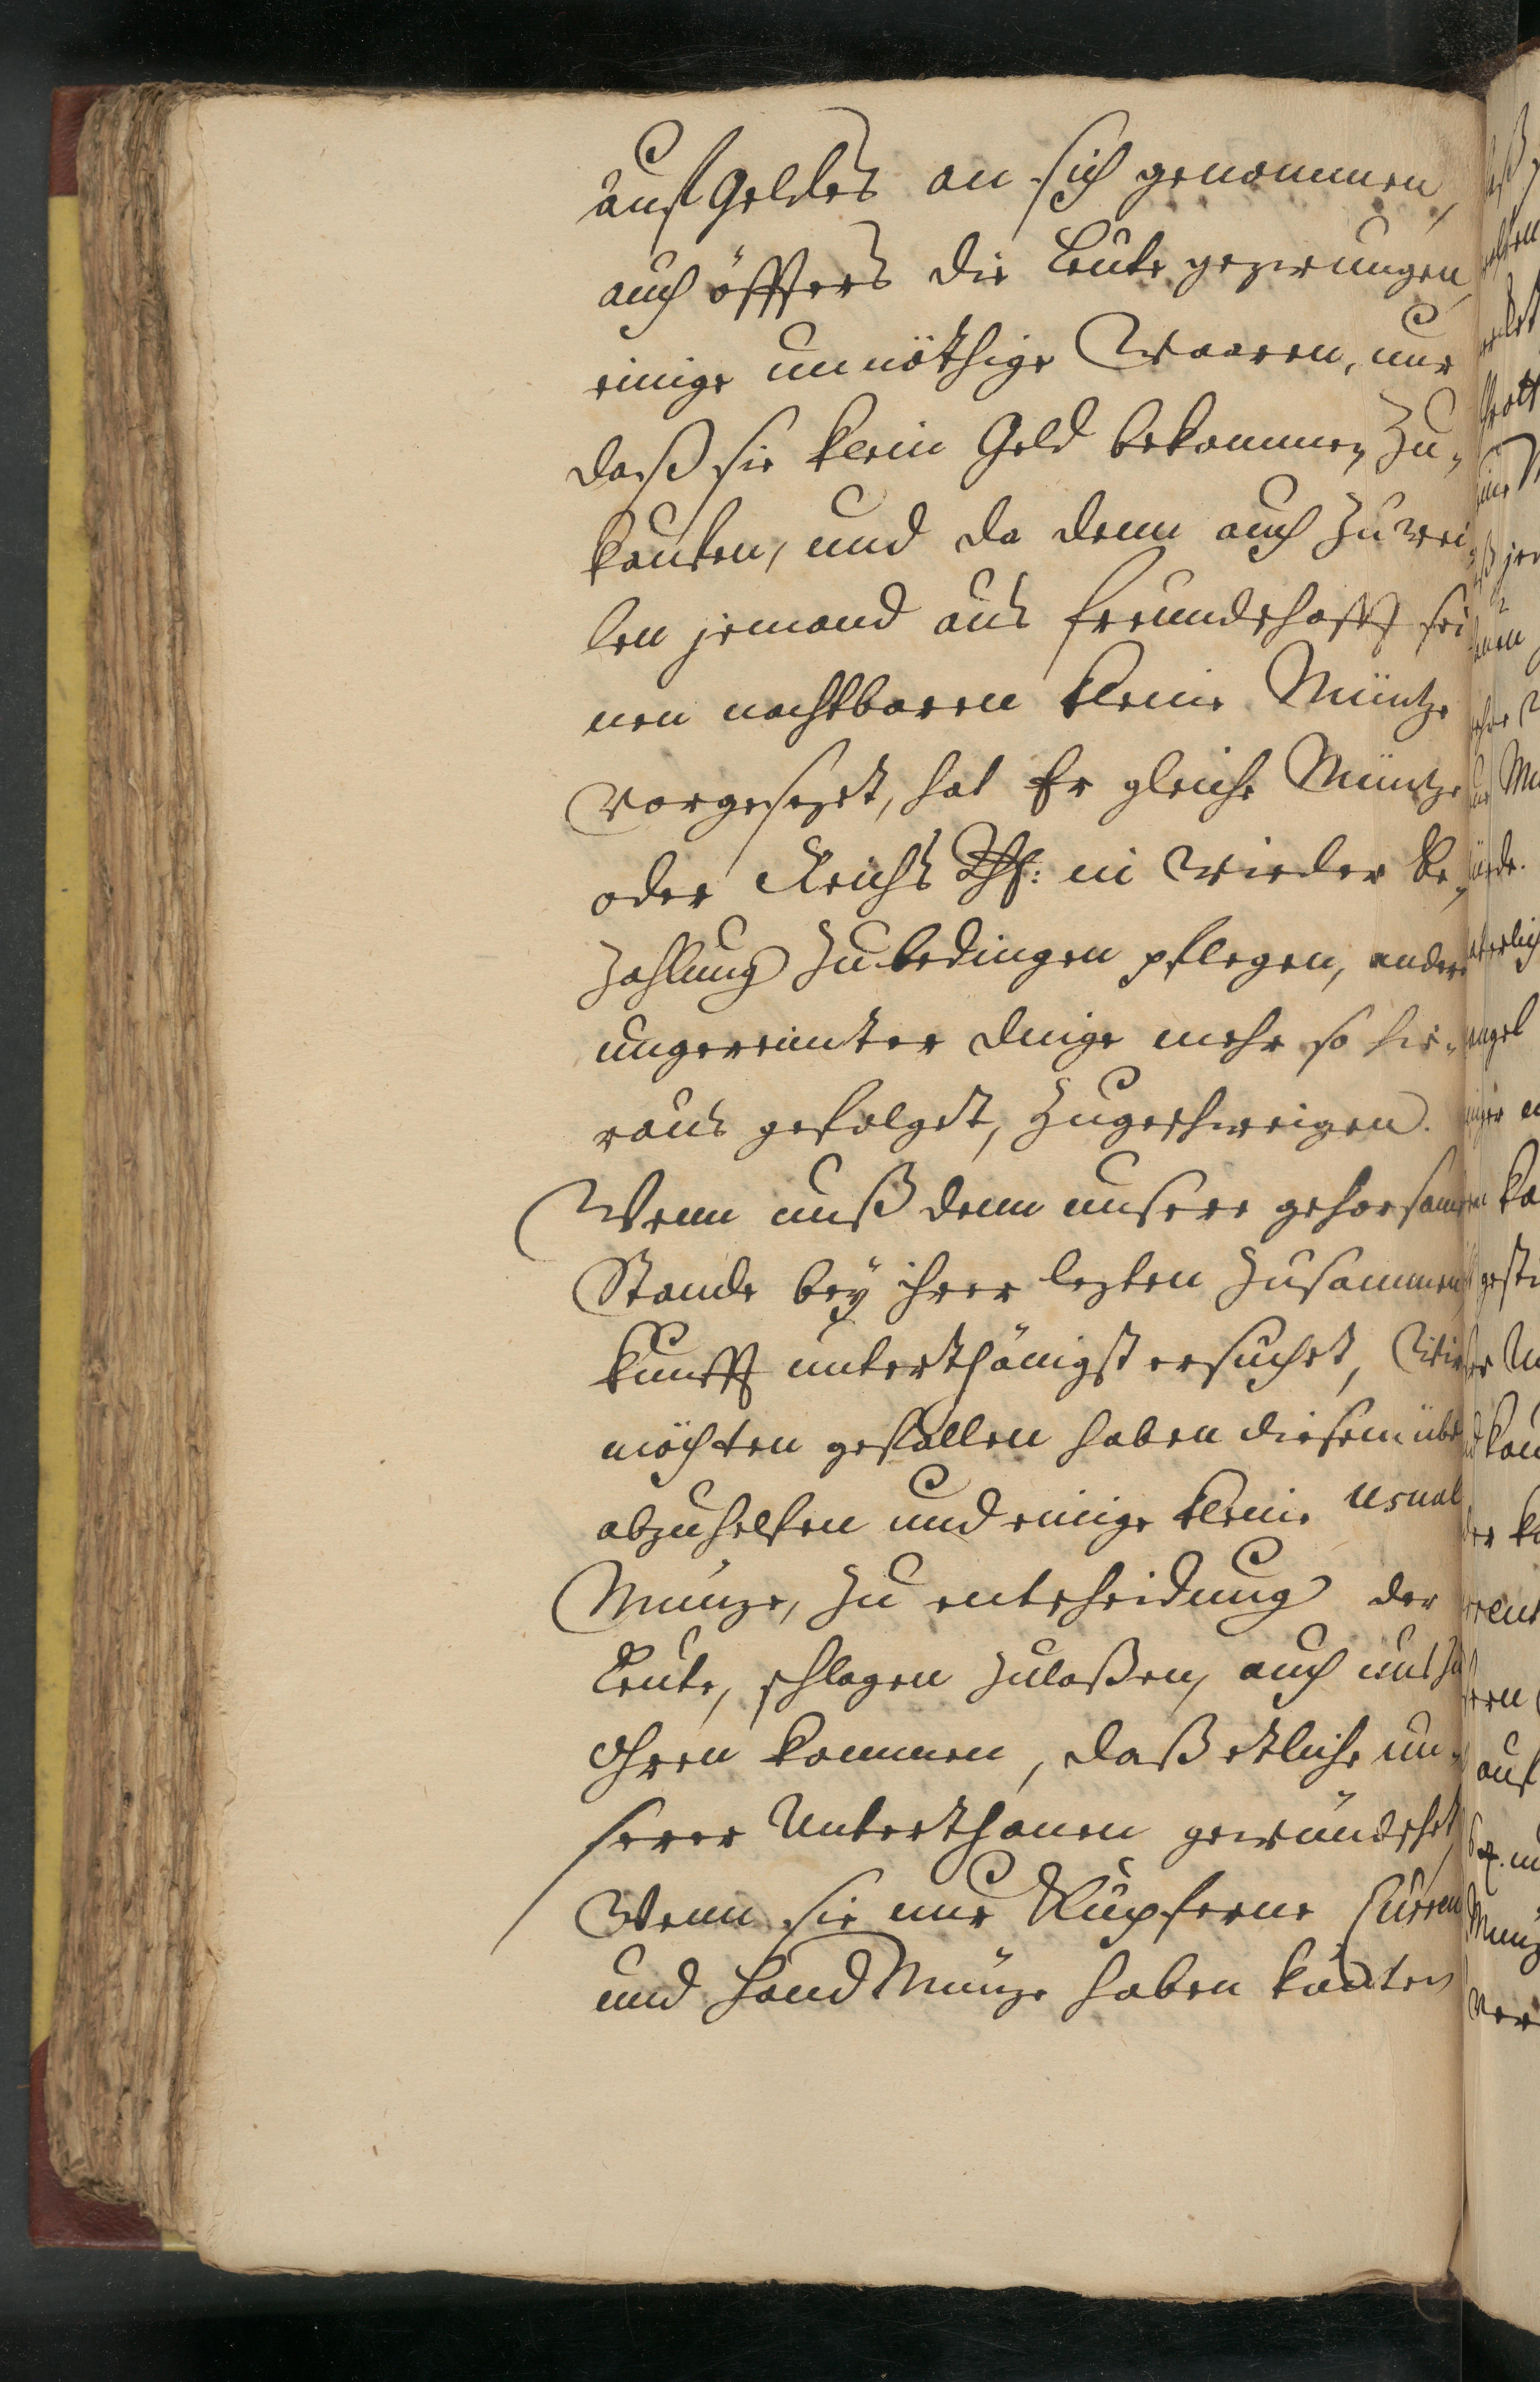 auf Geldes an sich genommen,
auch öffters die Leute gezwungen,
einige unnöthige Waaren, nur
daß sie klein Geld bekommen, zu„
kauffen, und da denn auch zuwei„
len jemand aus freundschafft sei
nen nachbaren kleine Müntze
vorgesezet, hat Er gleiche Müntze
oder Reichs Thl: in wieder be„
zahlung zubedingen pflegen, andere
ungereimter dinge mehr so hie„
raus gefolget, zugeschweigen.
Wenn unß denn unsere gehorsame
Stände bey ihrer lezten zusammen
kunfft unterthänigst ersuchet, Wir
möchten gefallen haben diesem übel
abzuhelfen und einige kleine Usual
Münze, zu entscheidung der
Leute, schlagen zulaßen, auch uns zu
Ohren kommen, daß etliche un„
serer Unterthanen gewündschet,
Wenn sie nur Kupferne Curren
und Hand Münze haben könten